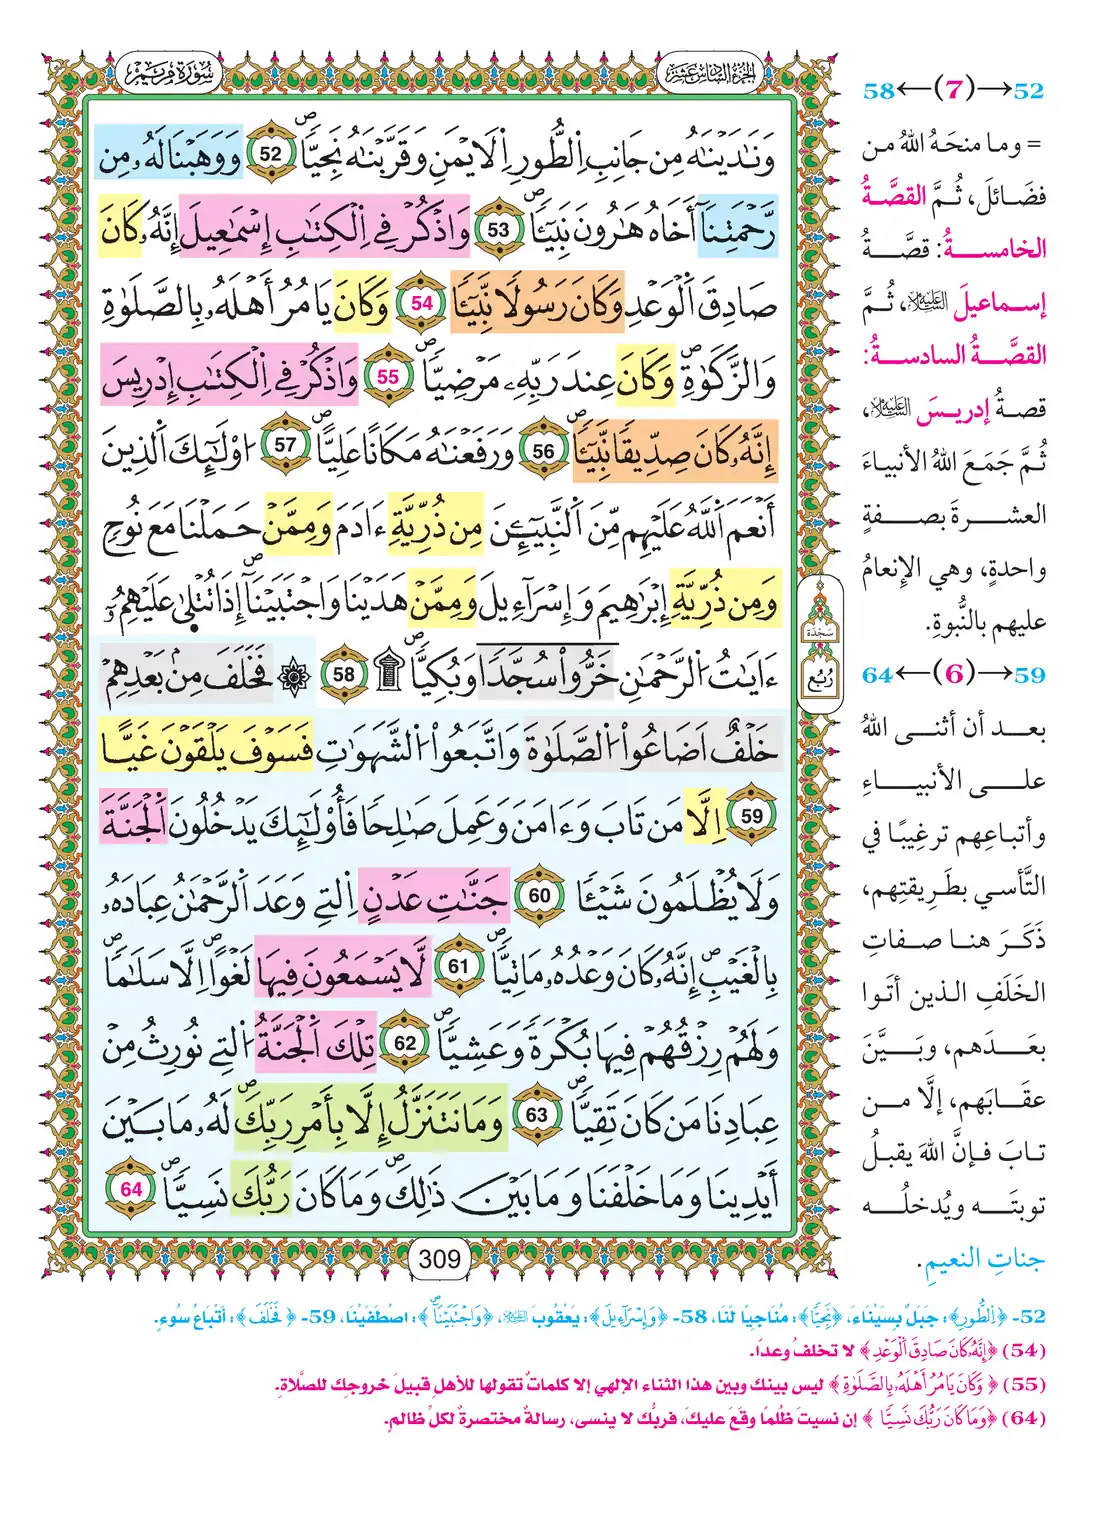 الجزء السادس عشر
سورة مريم
وَنَٰدَيْنَٰهُ مِن جَانِبِ اِ۬لطُّورِ اِ۬لَايْمَنِ وَقَرَّبْنَٰهُ نَجِيّٗاۖ 52 وَوَهَبْنَا لَهُۥ مِن
رَّحْمَتِنَآ أَخَاهُ هَٰرُونَ نَبِيٓـٔٗاۖ 53 وَاذْكُرْ فِے اِ۬لْكِتَٰبِ إِسْمَٰعِيلَ إِنَّهُۥ كَانَ
صَادِقَ اَ۬لْوَعْدِ وَكَانَ رَسُولٗا نَّبِيٓـٔٗا 54 وَكَانَ يَامُرُ أَهْلَهُۥ بِالصَّلَوٰةِ
وَالزَّكَوٰةِۖ وَكَانَ عِندَ رَبِّهِۦ مَرْضِيّٗاۖ 55 وَاذْكُرْ فِے اِ۬لْكِتَٰبِ إِدْرِيسَ
إِنَّهُۥ كَانَ صِدِّيقٗا نَّبِيٓـٔٗاۖ 56 وَرَفَعْنَٰهُ مَكَاناً عَلِيّاًۖ 57 ا۟وْلَٰٓئِكَ اَ۬لذِينَ
أَنْعَمَ اَ۬للَّهُ عَلَيْهِم مِّنَ اَ۬لنَّبِيٓـِٕۧنَ مِن ذُرِّيَّةِ ءَادَمَ وَمِمَّنْ حَمَلْنَا مَعَ نُوحٖ
وَمِن ذُرِّيَّةِ إِبْرَٰهِيمَ وَإِسْرَآءِيلَ وَمِمَّنْ هَدَيْنَا وَاجْتَبَيْنَآۖ إِذَا تُتْل۪يٰ عَلَيْهِمُۥٓ
ءَايَٰتُ اُ۬لرَّحْمَٰنِ خَرُّواْ سُجَّداٗ وَبُكِيّٗاۖ ۩ 58 ۞ فَخَلَفَ مِنۢ بَعْدِهِمْ
خَلْفٌ اَضَاعُواْ اُ۬لصَّلَوٰةَ وَاتَّبَعُواْ اُ۬لشَّهَوَٰتِ فَسَوْفَ يَلْقَوْنَ غَيّاً
59 اِلَّا مَن تَابَ وَءَامَنَ وَعَمِلَ صَٰلِحٗا فَأُوْلَٰٓئِكَ يَدْخُلُونَ اَ۬لْجَنَّةَ
وَلَا يُظْلَمُونَ شَيْـٔٗا 60 جَنَّٰتِ عَدْنٍ اِ۬لتِے وَعَدَ اَ۬لرَّحْمَٰنُ عِبَادَهُۥ
بِالْغَيْبِۖ إِنَّهُۥ كَانَ وَعْدُهُۥ مَاتِيّٗاۖ 61 لَّا يَسْمَعُونَ فِيهَا لَغْواًۖ اِلَّا سَلَٰمٗاۖ
وَلَهُمْ رِزْقُهُمْ فِيهَا بُكْرَةٗ وَعَشِيّٗاۖ 62 تِلْكَ اَ۬لْجَنَّةُ اُ۬لتِے نُورِثُ مِنْ
عِبَادِنَا مَن كَانَ تَقِيّٗاۖ 63 وَمَا نَتَنَزَّلُ إِلَّا بِأَمْرِ رَبِّكَۖ لَهُۥ مَا بَيْنَ
أَيْدِينَا وَمَا خَلْفَنَا وَمَا بَيْنَ ذَٰلِكَۖ وَمَا كَانَ رَبُّكَ نَسِيّٗاۖ 64
سَجْدَة
رُبُع
309
52→(7)←58
= وما منحَهُ اللهُ من
فضَائلَ، ثُمَّ القصَّةُ
الخامسةُ: قصَّةُ
إسماعيلَ عليه السلام، ثُمَّ
القصَّةُ السادسةُ:
قصةُ إدريسَ عليه السلام،
ثُمَّ جَمَعَ اللهُ الأنبياءَ
العشرةَ بصفةٍ
واحدةٍ، وهي الإنعامُ
عليهم بالنُّبوةِ.
59→(6)←64
بعد أن أثنى اللهُ
على الأنبياءِ
وأتباعِهم ترغيبًا في
التَّأسي بطَرِيقتِهم،
ذَكَرَ هنا صفاتِ
الخَلَفِ الذين أتَوا
بعدَهم، وبَيَّنَ
عقابَهم، إلَّا من
تابَ فإنَّ اللهَ يقبلُ
توبتَه ويُدخلُه
جناتِ النعيمِ.
52- ﴿اِ۬لطُّورِ﴾: جبَلٌ بِسَيْنَاءَ، ﴿نَجِيّٗا﴾: مُنَاجِيًا لَنَا، 58- ﴿وَإِسْرَآءِيلَ﴾: يَعْقُوبَ عليه السلام، ﴿وَاجْتَبَيْنَآۖ﴾: اصْطَفَيْنَا، 59- ﴿فَخَلَفَ﴾: أتْبَاعُ سُوءٍ.
(54) ﴿إِنَّهُۥ كَانَ صَادِقَ اَ۬لْوَعْدِ﴾ لا تخلفْ وعدًا.
(55) ﴿وَكَانَ يَامُرُ أَهْلَهُۥ بِالصَّلَوٰةِ﴾ ليس بينك وبين هذا الثناء الإلهي إلا كلماتٌ تقولها للأهلِ قبيلَ خروجِك للصَّلاةِ.
(64) ﴿وَمَا كَانَ رَبُّكَ نَسِيّٗا﴾ إن نسيتَ ظُلمًا وقعَ عليكَ، فربُّك لا ينسى، رسالةٌ مختصرةٌ لكلِّ ظالمٍ.